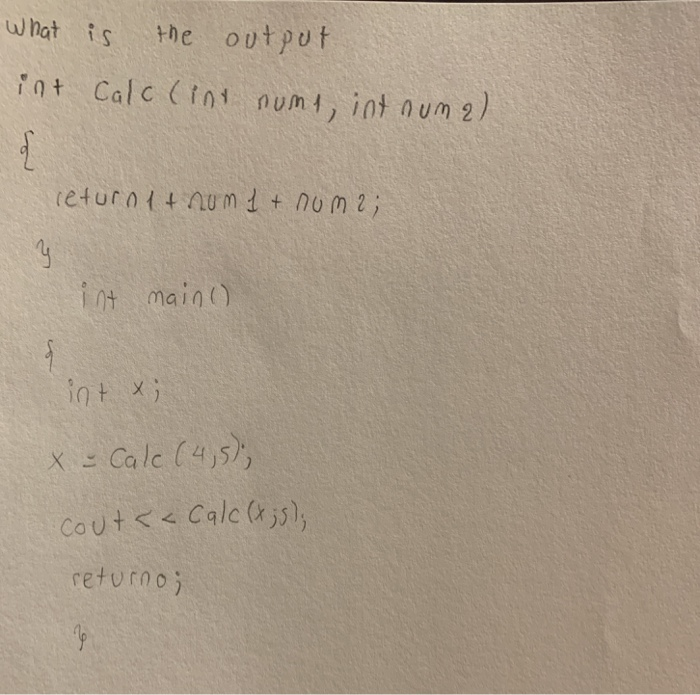 what is the output
int Calc (int num1, int num2)
{
return1 + num1 + num2;
}
int main()
{
int x;
x = Calc (4,5);
cout << Calc(x;5);
return0;
}